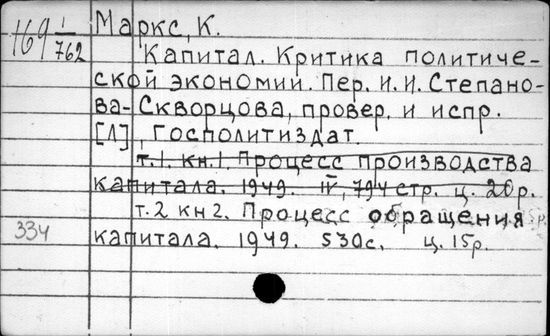 169 1/762 Маркс, К.
Капитал. Критика политиче-
ской экономии. Пер. И.И. Степано-
ва-Скворцова, провер. и испр.
[Л], Госполитиздат.
т.1. кн.1. Процесс производства
капитала. 1949. IV, 794 стр. ц. 20р.
т.2 кн2. Процесс обращения
334 капитала. 1949. 530с. ц. 15р.